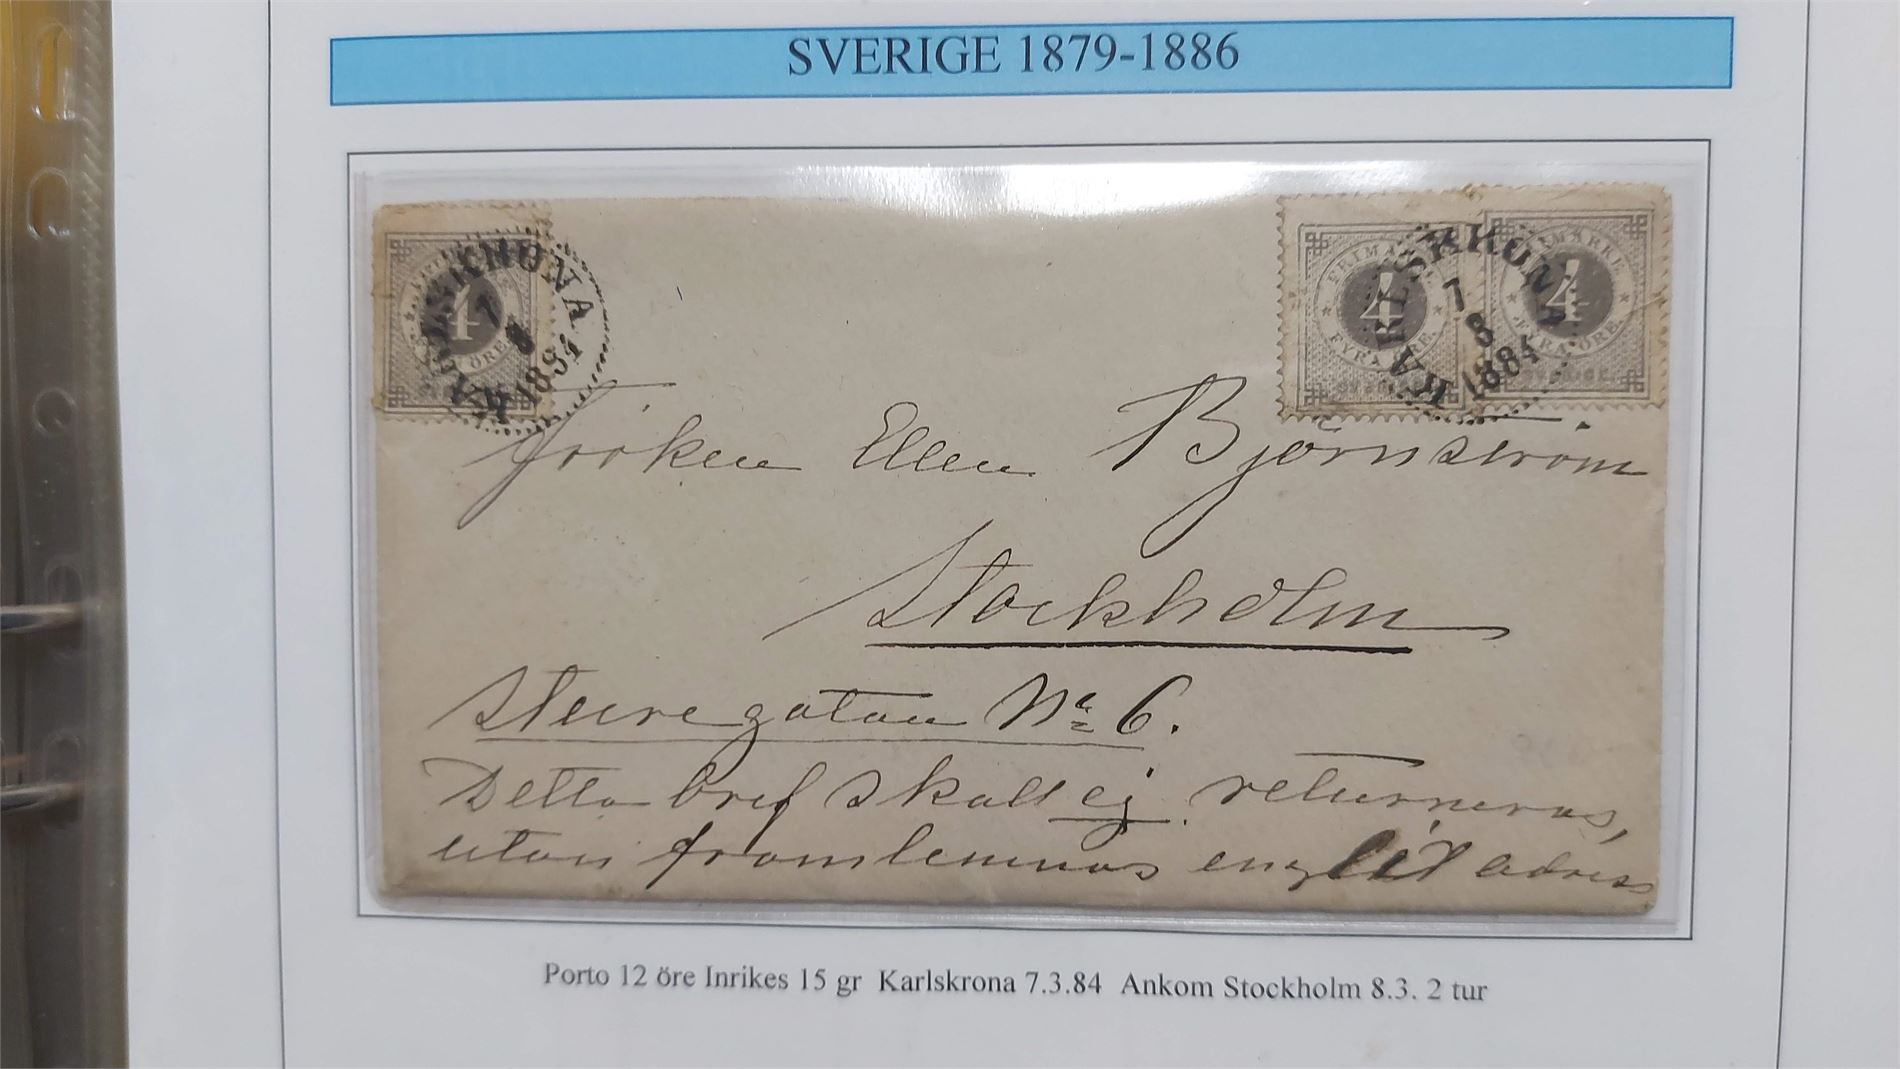 SVERIGE 1879-1886
KARLSKRONA
7
3
1884
4
ÖRE
KARLSKRONA
7
3
1884
FRIMÄRKE
4
FYRA ÖRE
SVERIGE
FRIMÄRKE
4
FYRA ÖRE
SVERIGE
Fröken Ellen Björnström
Stockholm
Sturegatan No 6.
Detta bref skall ej returneras,
utan framlemnas adress
Porto 12 öre Inrikes 15 gr Karlskrona 7.3.84 Ankom Stockholm 8.3. 2 tur